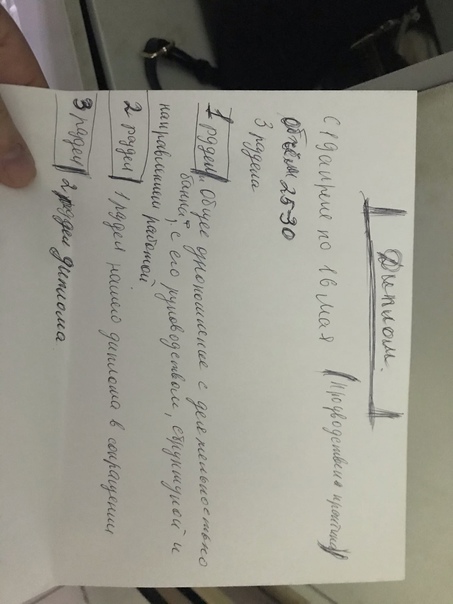 Диплом.
С 1 апреля по 16 мая (продвоственя практика)
Объём 25-30
3 раздела
1 раздел Общее ознакомление с деятельностью
банка, с его руководством, структурой и
направлениями работой.
2 раздел 1 раздел нашего диплома в сокращении
3 раздел 2 раздел диплома.